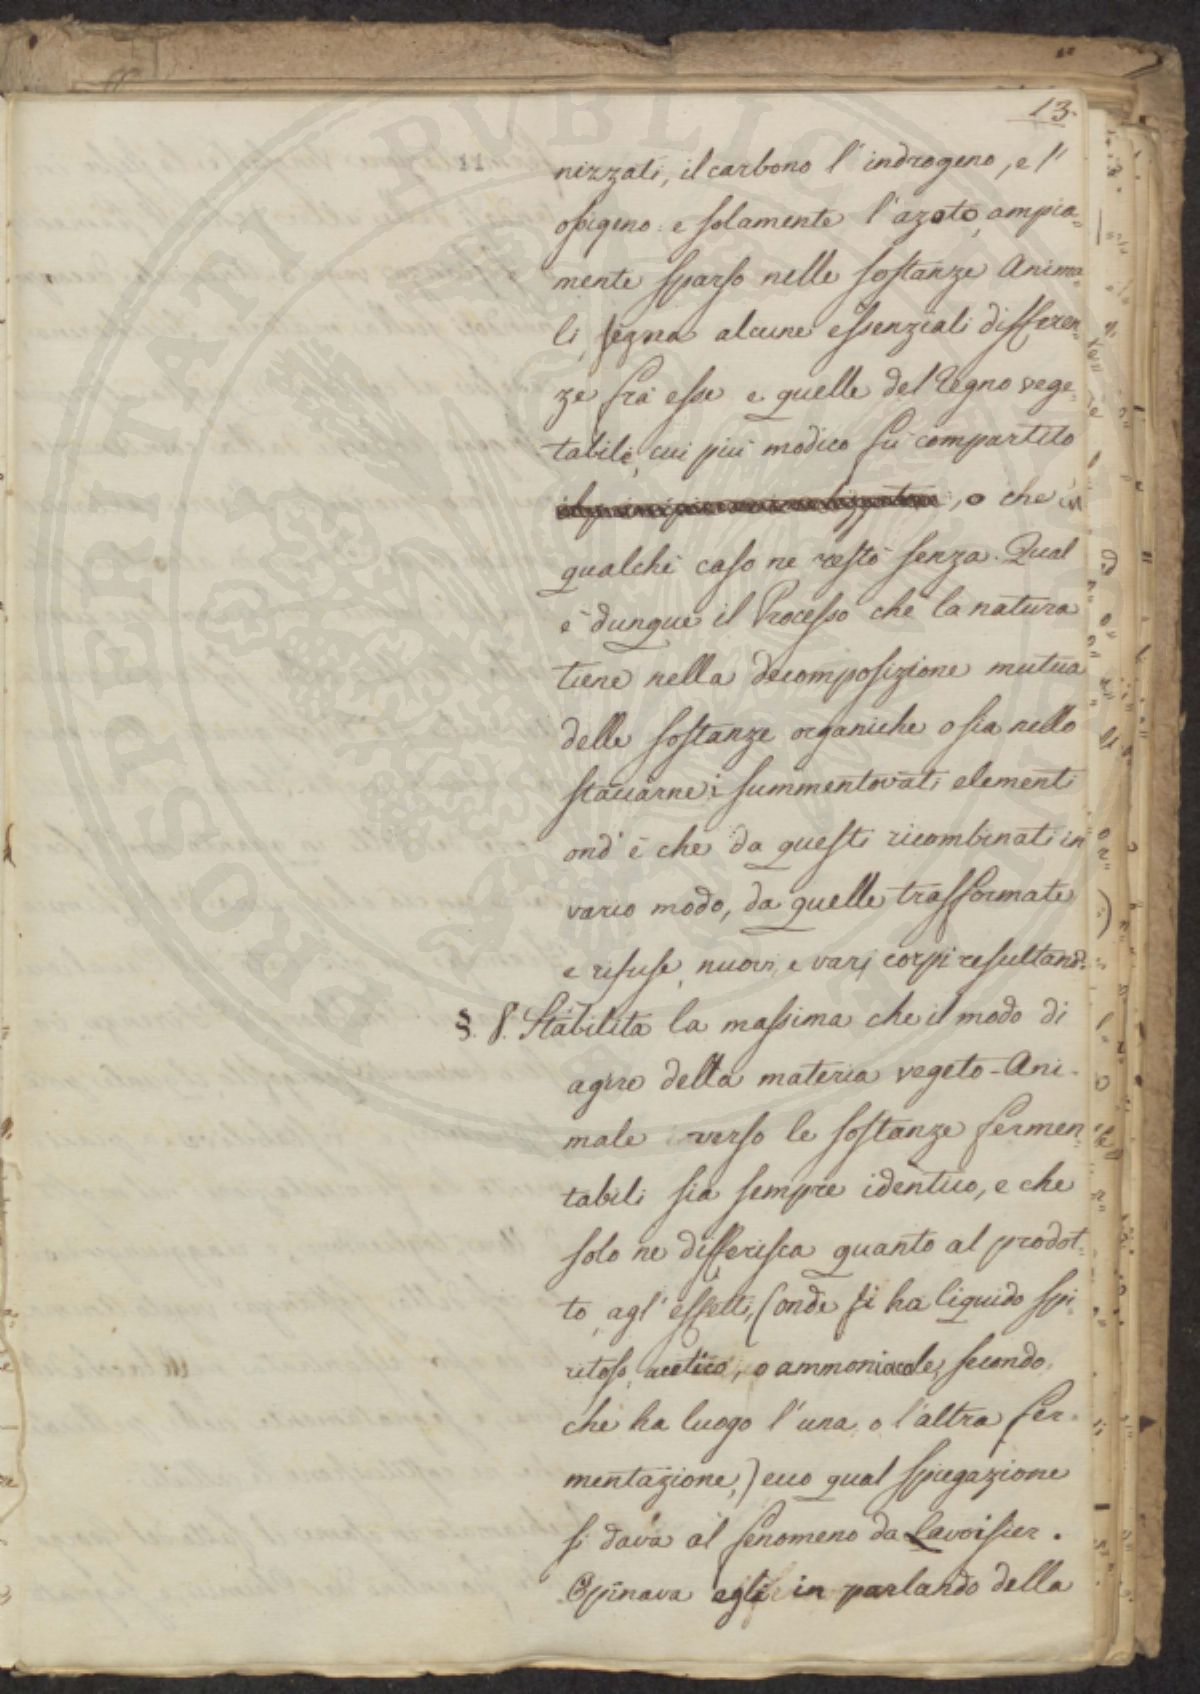 13.
nizzati, il carbono l'indrogeno, e l'
ossigeno: e solamente l'azoto, ampia=
mente sparso nelle sostanze Anima=
li, segna alcune essenziali differen=
ze frà esse e quelle del Regno vege=
tabile, cui più modico fù compartito
, o che in
qualche caso ne restò senza. Qual
è dunque il Processo che la natura
tiene nella decomposizione mutua
delle sostanze organiche o sia nello
staccarne i summentovati elementi
ond' è che da questi ricombinati in
vario modo, da quelle trasformate
e rifuse, nuovi, e varj corpi resultano.
§. 8. Stabilita la massima che il modo di
agire della materia vegeto-Ani-
male verso le sostanze fermen=
tabili sia sempre identico, e che
solo ne differisca quanto al prodot=
to, agl' effetti, (onde si ha liquido spi
ritoso, acetico, o ammoniacale, secondo
che ha luogo l'una o l'altra fer=
mentazione,) ecco qual spiegazione
si dava al fenomeno da Lavoisier.
Opinava egli in parlando della
PROSPERITATI PUBLIC
11